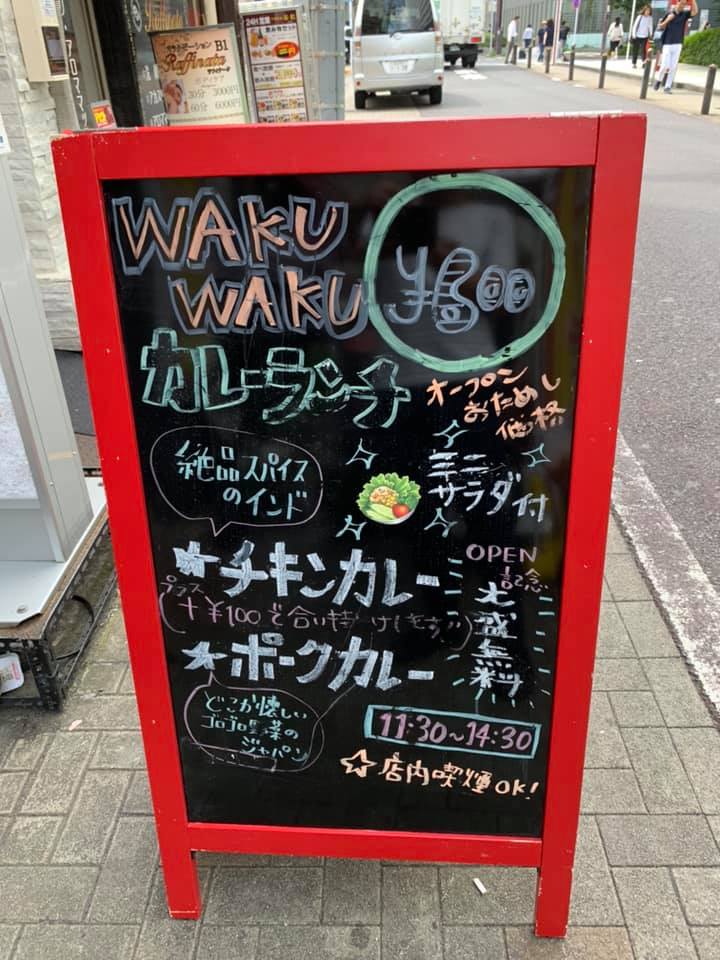 B1
Raffinata
30分 3000円
60分 6000円
WAKU
WAKU
¥800
カレーランチ
オープン
おためし
価格
絶品スパイス
のインド
ミニ
サラダ付
★チキンカレー
OPEN
記念
大盛無料
プラス
+¥100で合い持けします
★ポークカレー
どこか懐しい
ゴロゴロ野菜の
ジャパン
11:30~14:30
☆店内喫煙OK!